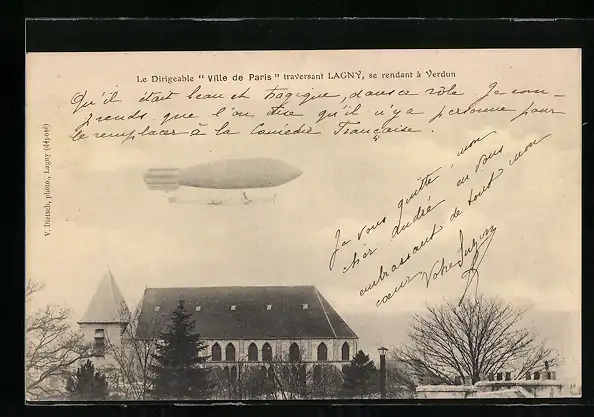 Le Dirigeable "Ville de Paris" traversant LAGNY, se rendant à Verdun
Qu'il était beau et tragique, dans ce rôle. Je com-
prends, que l'on dise qu'il n'y a personne pour
le remplacer à la Comédie Française.
Je vous quitte, mon
cher André en vous
embrassant de tout mon
cœur Votre Suzon
V. Dietsch, photo., Lagny (déposé)